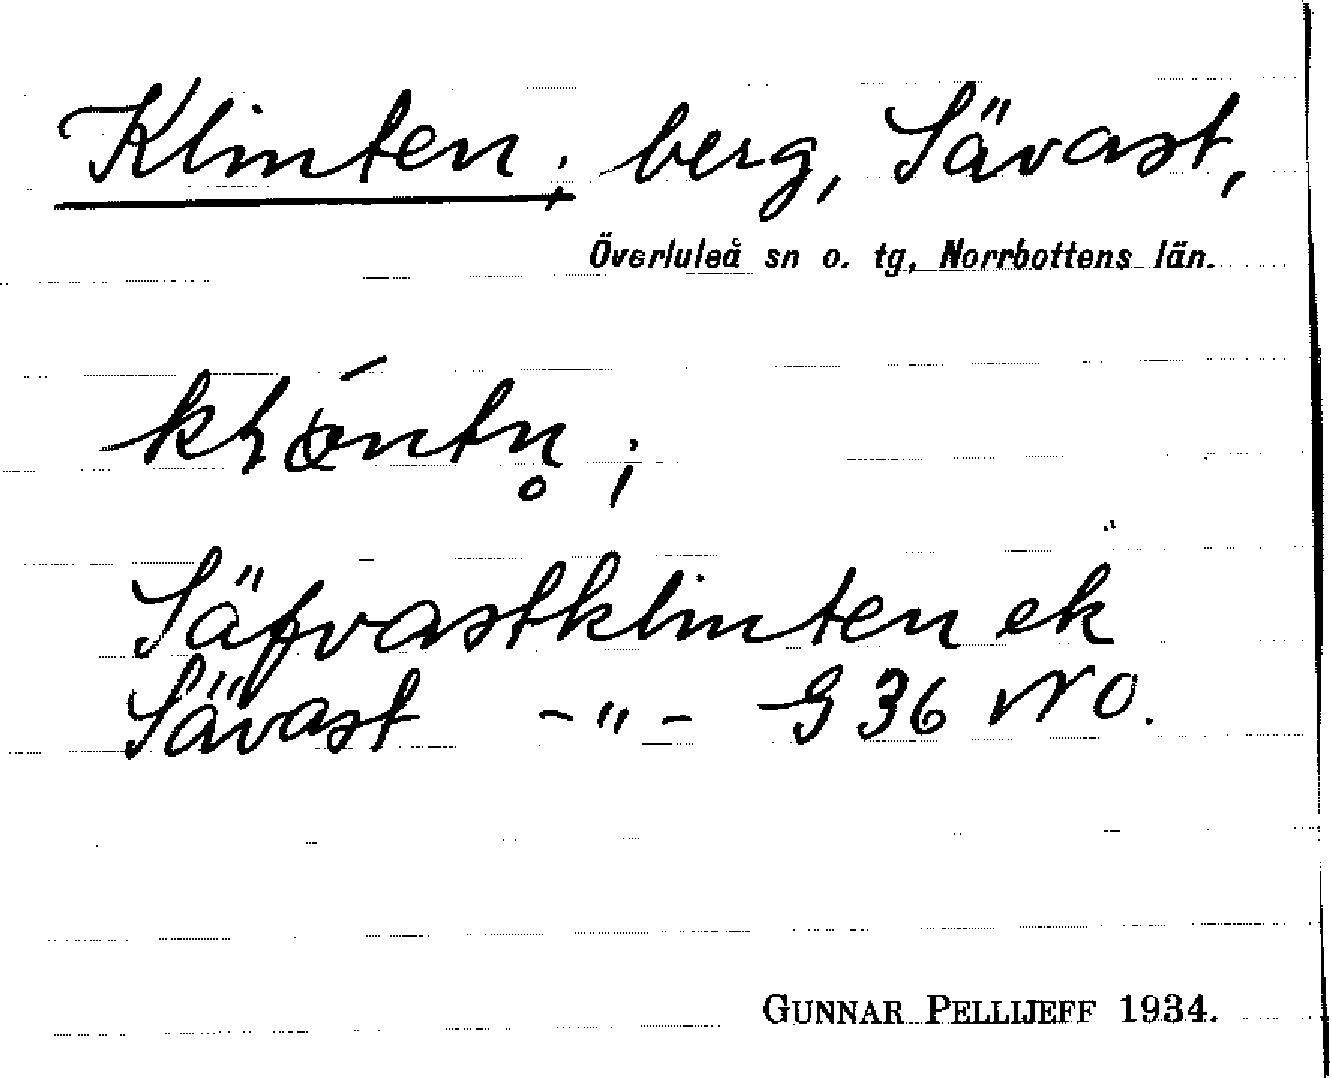 Klinten; berg, Sävast,
Överluleå sn o. tg, Norrbottens län.
Säfvastklinten ek
Sävast -"- G 36 NO.
GUNNAR PELLIJEFF 1934.